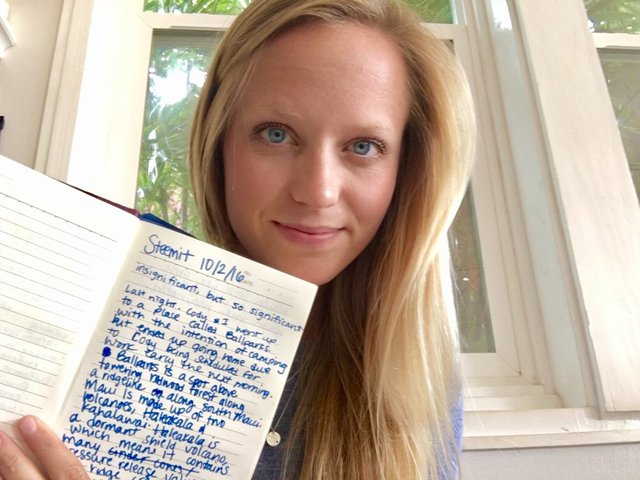 Steemit 10/2/16
insignificant, but so significant
Last night, Cody & I went up
to a place called Ballparks.
with the intention of camping
but ended up going home due
to Cody being scheduled for
work early the next morning.
Ballparks is a spot above
towering forest along
a ridgeline on along South Maui.
Maui is made up of two
volcanoes, Haleakala &
Kahalawai. Haleakala is
a dormant shield volcano,
which means it contains
many cinder cones/
pressure release
ridge